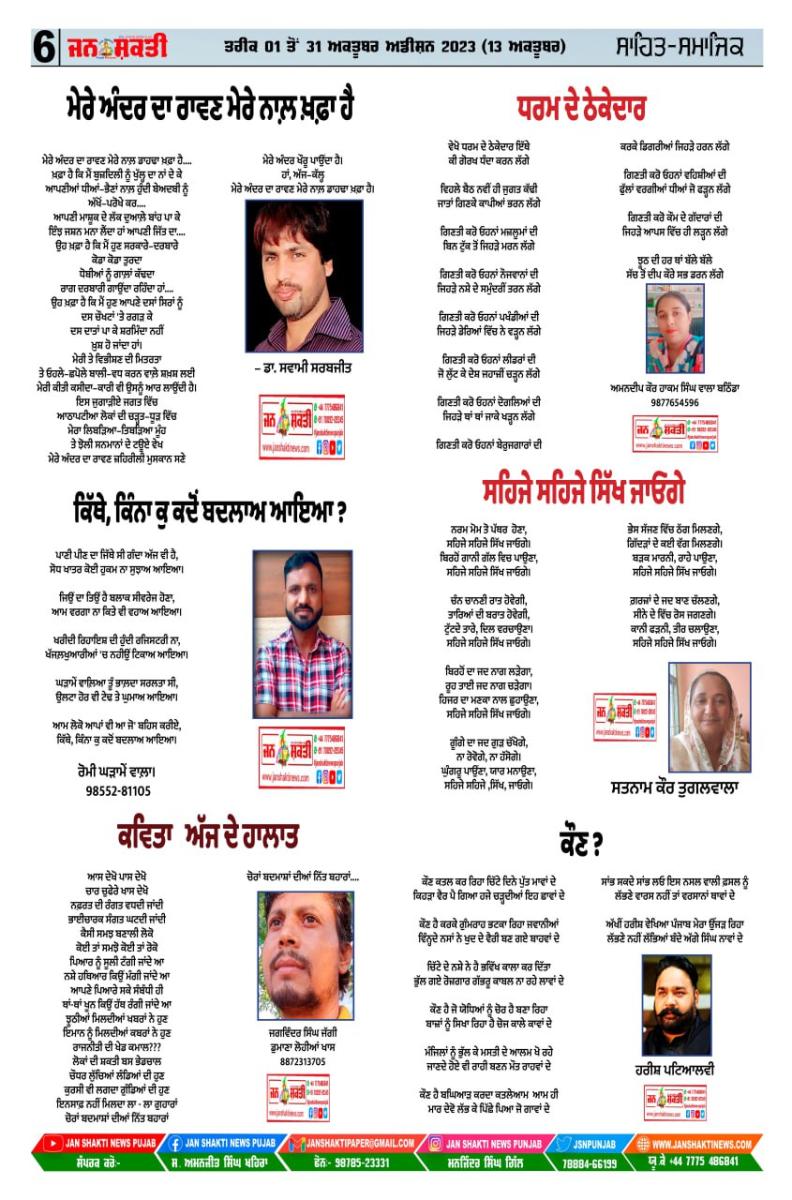 6 ਜਨ ਸ਼ਕਤੀ ਤਰੀਕ 01 ਤੋਂ 31 ਅਕਤੂਬਰ ਅਡੀਸ਼ਨ 2023 (13 ਅਕਤੂਬਰ) ਸਾਹਿਤ-ਸਮਾਜਿਕ
ਮੇਰੇ ਅੰਦਰ ਦਾ ਰਾਵਣ ਮੇਰੇ ਨਾਲ਼ ਖ਼ਫ਼ਾ ਹੈ
ਮੇਰੇ ਅੰਦਰ ਦਾ ਰਾਵਣ ਮੇਰੇ ਨਾਲ਼ ਡਾਹਢਾ ਖ਼ਫ਼ਾ ਹੈ....
ਖ਼ਫ਼ਾ ਹੈ ਕਿ ਮੈਂ ਬੁਜ਼ਦਿਲੀ ਨੂੰ ਖੁੱਲ੍ਹ ਦਾ ਨਾਂ ਦੇ ਕੇ
ਆਪਣੀਆਂ ਧੀਆਂ-ਭੈਣਾਂ ਨਾਲ਼ ਹੁੰਦੀ ਬੇਅਦਬੀ ਨੂੰ
ਅੱਖੋਂ-ਪਰੋਖੇ ਕਰ....
ਆਪਣੀ ਮਾਸ਼ੂਕ ਦੇ ਲੱਕ ਦੁਆਲ਼ੇ ਬਾਂਹ ਪਾ ਕੇ
ਇੰਝ ਜਸ਼ਨ ਮਨਾ ਲੈਂਦਾ ਹਾਂ ਆਪਣੀ ਜਿੱਤ ਦਾ....
ਉਹ ਖ਼ਫ਼ਾ ਹੈ ਕਿ ਮੈਂ ਹੁਣ ਸਰਕਾਰੇ-ਦਰਬਾਰੇ
ਕੋਡਾ ਕੋਡਾ ਤੁਰਦਾ
ਧੋਬੀਆਂ ਨੂੰ ਗਾਲ਼ਾਂ ਕੱਢਦਾ
ਰਾਗ ਦਰਬਾਰੀ ਗਾਉਂਦਾ ਰਹਿੰਦਾ ਹਾਂ....
ਉਹ ਖ਼ਫ਼ਾ ਹੈ ਕਿ ਮੈਂ ਹੁਣ ਆਪਣੇ ਦਸਾਂ ਸਿਰਾਂ ਨੂੰ
ਦਸ ਚੌਖਟਾਂ 'ਤੇ ਰਗੜ ਕੇ
ਦਸ ਦਾਤਾਂ ਪਾ ਕੇ ਸ਼ਰਮਿੰਦਾ ਨਹੀਂ
ਖ਼ੁਸ਼ ਹੋ ਜਾਂਦਾ ਹਾਂ।
ਮੇਰੀ ਤੇ ਵਿਭੀਸ਼ਣ ਦੀ ਮਿਤਰਤਾ
ਤੇ ਓਹਲੇ-ਛਪੋਲੇ ਬਾਲੀ-ਵਧ ਕਰਨ ਵਾਲ਼ੇ ਸ਼ਖ਼ਸ਼ ਲਈ
ਮੇਰੀ ਕੀਤੀ ਕਸੀਦਾ-ਕਾਰੀ ਵੀ ਉਸਨੂੰ ਆਰ ਲਾਉਂਦੀ ਹੈ।
ਇਸ ਜੁਗਾੜੀਏ ਜਗਤ ਵਿੱਚ
ਆਠਾਪਟੀਆ ਲੋਕਾਂ ਦੀ ਚੜ੍ਹਤ-ਧੂੜ ਵਿੱਚ
ਮੇਰਾ ਲਿਬੜਿਆ-ਤਿਬੜਿਆ ਮੂੰਹ
ਤੇ ਝੋਲੀ ਸਨਮਾਨਾਂ ਦੇ ਟਊਏ ਵੇਖ
ਮੇਰੇ ਅੰਦਰ ਦਾ ਰਾਵਣ ਜ਼ਹਿਰੀਲੀ ਮੁਸਕਾਨ ਸਣੇ
ਮੇਰੇ ਅੰਦਰ ਖੌਰੂ ਪਾਉਂਦਾ ਹੈ।
ਹਾਂ, ਅੱਜ-ਕੱਲ੍ਹ
ਮੇਰੇ ਅੰਦਰ ਦਾ ਰਾਵਣ ਮੇਰੇ ਨਾਲ਼ ਡਾਹਢਾ ਖ਼ਫ਼ਾ ਹੈ।
– ਡਾ. ਸਵਾਮੀ ਸਰਬਜੀਤ
ਜਨ ਸ਼ਕਤੀ
www.janshaktinews.com
ਧਰਮ ਦੇ ਠੇਕੇਦਾਰ
ਵੇਖੋ ਧਰਮ ਦੇ ਠੇਕੇਦਾਰ ਇੱਥੇ
ਕੀ ਗੋਰਖ ਧੰਦਾ ਕਰਨ ਲੱਗੇ
ਵਿਹਲੇ ਬੈਠ ਨਵੀਂ ਹੀ ਜੁਗਤ ਕੱਢੀ
ਜਾਤਾਂ ਗਿਣਕੇ ਕਾਪੀਆਂ ਭਰਨ ਲੱਗੇ
ਗਿਣਤੀ ਕਰੋ ਓਹਨਾਂ ਮਜ਼ਲੂਮਾਂ ਦੀ
ਬਿਨ ਟੁੱਕ ਤੋਂ ਜਿਹੜੇ ਮਰਨ ਲੱਗੇ
ਗਿਣਤੀ ਕਰੋ ਓਹਨਾਂ ਨੌਜਵਾਨਾਂ ਦੀ
ਜਿਹੜੇ ਨਸ਼ੇ ਦੇ ਸਮੁੰਦਰੀਂ ਤਰਨ ਲੱਗੇ
ਗਿਣਤੀ ਕਰੋ ਓਹਨਾਂ ਪਖੰਡੀਆਂ ਦੀ
ਜਿਹੜੇ ਡੇਰਿਆਂ ਵਿੱਚ ਨੇ ਵੜ੍ਹਨ ਲੱਗੇ
ਗਿਣਤੀ ਕਰੋ ਓਹਨਾਂ ਲੀਡਰਾਂ ਦੀ
ਜੋ ਲੁੱਟ ਕੇ ਦੇਸ਼ ਜਹਾਜ਼ੀਂ ਚੜ੍ਹਨ ਲੱਗੇ
ਗਿਣਤੀ ਕਰੋ ਓਹਨਾਂ ਦੋਗਲਿਆਂ ਦੀ
ਜਿਹੜੇ ਥਾਂ ਥਾਂ ਜਾਕੇ ਖੜ੍ਹਨ ਲੱਗੇ
ਗਿਣਤੀ ਕਰੋ ਓਹਨਾਂ ਬੇਰੁਜ਼ਗਾਰਾਂ ਦੀ
ਕਰਕੇ ਡਿਗਰੀਆਂ ਜਿਹੜੇ ਹਰਨ ਲੱਗੇ
ਗਿਣਤੀ ਕਰੋ ਓਹਨਾਂ ਵਹਿਸ਼ੀਆਂ ਦੀ
ਫੁੱਲਾਂ ਵਰਗੀਆਂ ਧੀਆਂ ਜੋ ਫੜ੍ਹਨ ਲੱਗੇ
ਗਿਣਤੀ ਕਰੋ ਕੌਮ ਦੇ ਗੱਦਾਰਾਂ ਦੀ
ਜਿਹੜੇ ਆਪਸ ਵਿੱਚ ਹੀ ਲੜ੍ਹਨ ਲੱਗੇ
ਝੂਠ ਦੀ ਹਰ ਥਾਂ ਬੱਲੇ ਬੱਲੇ
ਸੱਚ ਤੋਂ ਦੀਪ ਕੌਰੇ ਸਭ ਡਰਨ ਲੱਗੇ
ਅਮਨਦੀਪ ਕੌਰ ਹਾਕਮ ਸਿੰਘ ਵਾਲਾ ਬਠਿੰਡਾ
9877654596
ਜਨ ਸ਼ਕਤੀ
www.janshaktinews.com
ਕਿੱਥੇ, ਕਿੰਨਾ ਕੁ ਕਦੋਂ ਬਦਲਾਅ ਆਇਆ ?
ਪਾਣੀ ਪੀਣ ਦਾ ਜਿੱਥੇ ਸੀ ਗੰਦਾ ਅੱਜ ਵੀ ਹੈ,
ਸੋਧ ਖਾਤਰ ਕੋਈ ਹੁਕਮ ਨਾ ਸੁਝਾਅ ਆਇਆ।
ਜਿਉਂ ਦਾ ਤਿਉਂ ਹੈ ਬਲਾਕ ਸੀਵਰੇਜ ਹੋਣਾ,
ਆਮ ਵਰਗਾ ਨਾ ਕਿਤੇ ਵੀ ਵਹਾਅ ਆਇਆ।
ਖਰੀਦੀ ਰਿਹਾਇਸ਼ ਦੀ ਹੁੰਦੀ ਰਜਿਸਟਰੀ ਨਾ,
ਖੱਜਲ਼ਖੁਆਰੀਆਂ 'ਚ ਨਹੀਂਉਂ ਟਿਕਾਅ ਆਇਆ।
ਘੜਾਮੇਂ ਵਾਲ਼ਿਆ ਤੂੰ ਭਾਲ਼ਦਾ ਸਰਲਤਾ ਸੀ,
ਉਲਟਾ ਹੋਰ ਵੀ ਟੇਢ ਤੇ ਘੁਮਾਅ ਆਇਆ।
ਆਮ ਲੋਕੋ ਆਪਾਂ ਵੀ ਆ ਜੋ' ਬਹਿਸ ਕਰੀਏ,
ਕਿੱਥੇ, ਕਿੰਨਾ ਕੁ ਕਦੋਂ ਬਦਲਾਅ ਆਇਆ।
ਰੋਮੀ ਘੜਾਮੇਂ ਵਾਲ਼ਾ।
98552-81105
ਜਨ ਸ਼ਕਤੀ
www.janshaktinews.com
ਸਹਿਜੇ ਸਹਿਜੇ ਸਿੱਖ ਜਾਓਗੇ
ਨਰਮ ਮੋਮ ਤੋ ਪੱਥਰ ਹੋਣਾ,
ਸਹਿਜੇ ਸਹਿਜੇ ਸਿੱਖ ਜਾਓਗੇ।
ਬਿਰਹੋਂ ਗਾਨੀ ਗੱਲ ਵਿਚ ਪਾਉਣਾ,
ਸਹਿਜੇ ਸਹਿਜੇ ਸਿੱਖ ਜਾਓਗੇ।
ਚੰਨ ਚਾਨਣੀ ਰਾਤ ਹੋਵੇਗੀ,
ਤਾਰਿਆਂ ਦੀ ਬਰਾਤ ਹੋਵੇਗੀ,
ਟੁੱਟਦੇ ਤਾਰੇ, ਦਿਲ ਵਰਚਾਉਣਾ।
ਸਹਿਜੇ ਸਹਿਜੇ ਸਿੱਖ ਜਾਓਗੇ।
ਬਿਰਹੋਂ ਦਾ ਜਦ ਨਾਗ ਲੜੇਗਾ,
ਰੂਹ ਤਾਈ ਜਦ ਨਾਗ ਚੜੇਗਾ।
ਹਿਜਰ ਦਾ ਮਣਕਾ ਨਾਲ ਛੁਹਾਉਣਾ,
ਸਹਿਜੇ ਸਹਿਜੇ ਸਿੱਖ ਜਾਓਗੇ।
ਗੂੰਗੇ ਦਾ ਜਦ ਗੁੜ ਚੱਖੋਗੇ,
ਨਾ ਰੋਵੋਗੇ, ਨਾ ਹੱਸੋਗੇ।
ਘੁੰਗਰੂ ਪਾਉਣਾ, ਯਾਰ ਮਨਾਉਣਾ,
ਸਹਿਜੇ ਸਹਿਜੇ ,ਸਿੱਖ, ਜਾਓਗੇ।
ਭੇਸ ਸੱਜਣ ਵਿੱਚ ਠੱਗ ਮਿਲਣਗੇ,
ਗਿੱਦੜਾਂ ਦੇ ਕਈ ਵੱਗ ਮਿਲਣਗੇ।
ਬੜਕ ਮਾਰਨੀ, ਰਾਹੇ ਪਾਉਣਾ,
ਸਹਿਜੇ ਸਹਿਜੇ ਸਿੱਖ ਜਾਓਗੇ।
ਗ਼ਰਜ਼ਾਂ ਦੇ ਜਦ ਬਾਣ ਚੱਲਣਗੇ,
ਸੀਨੇ ਦੇ ਵਿੱਚ ਰੋਸ ਜਗਣਗੇ।
ਕਾਨੀ ਫੜਨੀ, ਤੀਰ ਚਲਾਉਣਾ,
ਸਹਿਜੇ ਸਹਿਜੇ ਸਿੱਖ ਜਾਓਗੇ।
ਜਨ ਸ਼ਕਤੀ
www.janshaktinews.com
ਸਤਨਾਮ ਕੌਰ ਤੁਗਲਵਾਲਾ
ਕਵਿਤਾ ਅੱਜ ਦੇ ਹਾਲਾਤ
ਆਸ ਦੇਖੋ ਪਾਸ ਦੇਖੋ
ਚਾਰ ਚੁਫੇਰੇ ਖਾਸ ਦੇਖੋ
ਨਫ਼ਰਤ ਦੀ ਰੰਗਤ ਵਧਦੀ ਜਾਂਦੀ
ਭਾਈਚਾਰਕ ਸੰਗਤ ਘਟਦੀ ਜਾਂਦੀ
ਕੈਸੀ ਸਮਝ ਬਣਾਲੀ ਲੋਕੋ
ਕੋਈ ਤਾਂ ਸਮਝੋ ਕੋਈ ਤਾਂ ਰੋਕੋ
ਪਿਆਰ ਨੂੰ ਸੂਲੀ ਟੰਗੀ ਜਾਂਦੇ ਆ
ਨਸ਼ੇ ਹਥਿਆਰ ਕਿਉਂ ਮੰਗੀ ਜਾਂਦੇ ਆ
ਆਪਣੇ ਪਿਆਰੇ ਸਕੇ ਸੰਬੰਧੀ ਹੀ
ਥਾਂ-ਥਾਂ ਖੂਨ ਕਿਉਂ ਹੱਥ ਰੰਗੀ ਜਾਂਦੇ ਆ
ਝੂਠੀਆਂ ਮਿਲਦੀਆਂ ਖਬਰਾਂ ਨੇ ਹੁਣ
ਇਮਾਨ ਨੂੰ ਮਿਲਦੀਆਂ ਕਬਰਾਂ ਨੇ ਹੁਣ
ਰਾਜਨੀਤੀ ਦੀ ਖੇਡ ਕਮਾਲ???
ਲੋਕਾਂ ਦੀ ਸ਼ਕਤੀ ਬਸ ਭੇਡਚਾਲ
ਚੌਧਰ ਲੁੱਚਿਆਂ ਲੰਡਿਆਂ ਦੀ ਹੁਣ
ਕੁਰਸੀ ਵੀ ਲਗਦਾ ਗੁੰਡਿਆਂ ਦੀ ਹੁਣ
ਇਨਸਾਫ਼ ਨਹੀਂ ਮਿਲਦਾ ਲਾ - ਲਾ ਗੁਹਾਰਾਂ
ਚੋਰਾਂ ਬਦਮਾਸ਼ਾਂ ਦੀਆਂ ਨਿੱਤ ਬਹਾਰਾਂ
ਚੋਰਾਂ ਬਦਮਾਸ਼ਾਂ ਦੀਆਂ ਨਿੱਤ ਬਹਾਰਾਂ....
ਜਗਵਿੰਦਰ ਸਿੰਘ ਜੱਗੀ
ਡੁਮਾਣਾ ਲੋਹੀਆਂ ਖਾਸ
8872313705
ਜਨ ਸ਼ਕਤੀ
www.janshaktinews.com
ਕੌਣ ?
ਕੌਣ ਕਤਲ ਕਰ ਰਿਹਾ ਚਿੱਟੇ ਦਿਨੇ ਪੁੱਤ ਮਾਵਾਂ ਦੇ
ਕਿਹੜਾ ਵੈਰ ਪੈ ਗਿਆ ਹਜੇ ਚੜ੍ਹਦੀਆਂ ਇਹ ਛਾਵਾਂ ਦੇ
ਕੌਣ ਹੈ ਕਰਕੇ ਗੁੰਮਰਾਹ ਭਟਕਾ ਰਿਹਾ ਜਵਾਨੀਆਂ
ਵਿੰਨ੍ਹਦੇ ਨਸਾਂ ਨੇ ਖੁਦ ਦੇ ਵੈਰੀ ਬਣ ਗਏ ਬਾਹਵਾਂ ਦੇ
ਚਿੱਟੇ ਦੇ ਨਸ਼ੇ ਨੇ ਹੈ ਭਵਿੱਖ ਕਾਲਾ ਕਰ ਦਿੱਤਾ
ਭੁੱਲ ਗਏ ਰੋਜ਼ਗਾਰ ਗੱਭਰੂ ਕਾਬਲ ਨਾ ਰਹੇ ਲਾਵਾਂ ਦੇ
ਕੌਣ ਹੈ ਜੋ ਯੋਧਿਆਂ ਨੂੰ ਚੋਰ ਹੈ ਬਣਾ ਰਿਹਾ
ਬਾਜ਼ਾਂ ਨੂੰ ਸਿਖਾ ਰਿਹਾ ਹੈ ਚੋਜ ਕਾਲੇ ਕਾਵਾਂ ਦੇ
ਮੰਜਿਲਾਂ ਨੂੰ ਭੁੱਲ ਕੇ ਮਸਤੀ ਦੇ ਆਲਮ ਖੋ ਰਹੇ
ਜਾਣਦੇ ਹੋਏ ਵੀ ਰਾਹੀ ਬਣਨ ਮੌਤ ਰਾਹਵਾਂ ਦੇ
ਕੌਣ ਹੈ ਬਘਿਆੜ ਕਰਦਾ ਕਤਲੇਆਮ ਆਮ ਹੀ
ਮਾਰ ਦੇਵੋ ਲੱਭ ਕੇ ਪਿੱਛੇ ਪਿਆ ਜੋ ਗਾਵਾਂ ਦੇ
ਸਾਂਭ ਸਕਦੇ ਸਾਂਭ ਲਓ ਇਸ ਨਸਲ ਵਾਲੀ ਫ਼ਸਲ ਨੂੰ
ਲੱਭਣੇ ਵਾਰਸ ਨਹੀਂ ਤਾਂ ਵਰਸਾਨਾਂ ਥਾਵਾਂ ਦੇ
ਅੱਖੀਂ ਹਰੀਸ਼ ਵੇਖਿਆ ਪੰਜਾਬ ਮੇਰਾ ਉੱਜੜ ਰਿਹਾ
ਲੱਭਣੇ ਨਹੀਂ ਲੱਭਿਆਂ ਬੰਦੇ ਅੱਗੇ ਸਿੰਘ ਨਾਵਾਂ ਦੇ
ਹਰੀਸ਼ ਪਟਿਆਲਵੀ
ਜਨ ਸ਼ਕਤੀ
www.janshaktinews.com
JAN SHAKTI NEWS PUJAB JAN SHAKTI NEWS PUNJAB JANSHAKTIPAPER@GMAIL.COM JAN SHAKTI NEWS PUNJAB JSNPUNJAB WWW.JANSHAKTINEWS.COM
ਸੰਪਰਕ ਕਰੋ:- ਸ. ਅਮਨਜੀਤ ਸਿੰਘ ਖਹਿਰਾ ਫੋਨ:- 98785-23331 ਮਨਜਿੰਦਰ ਸਿੰਘ ਗਿੱਲ 78884-66199 ਯੂ.ਕੇ +44 7775 486841